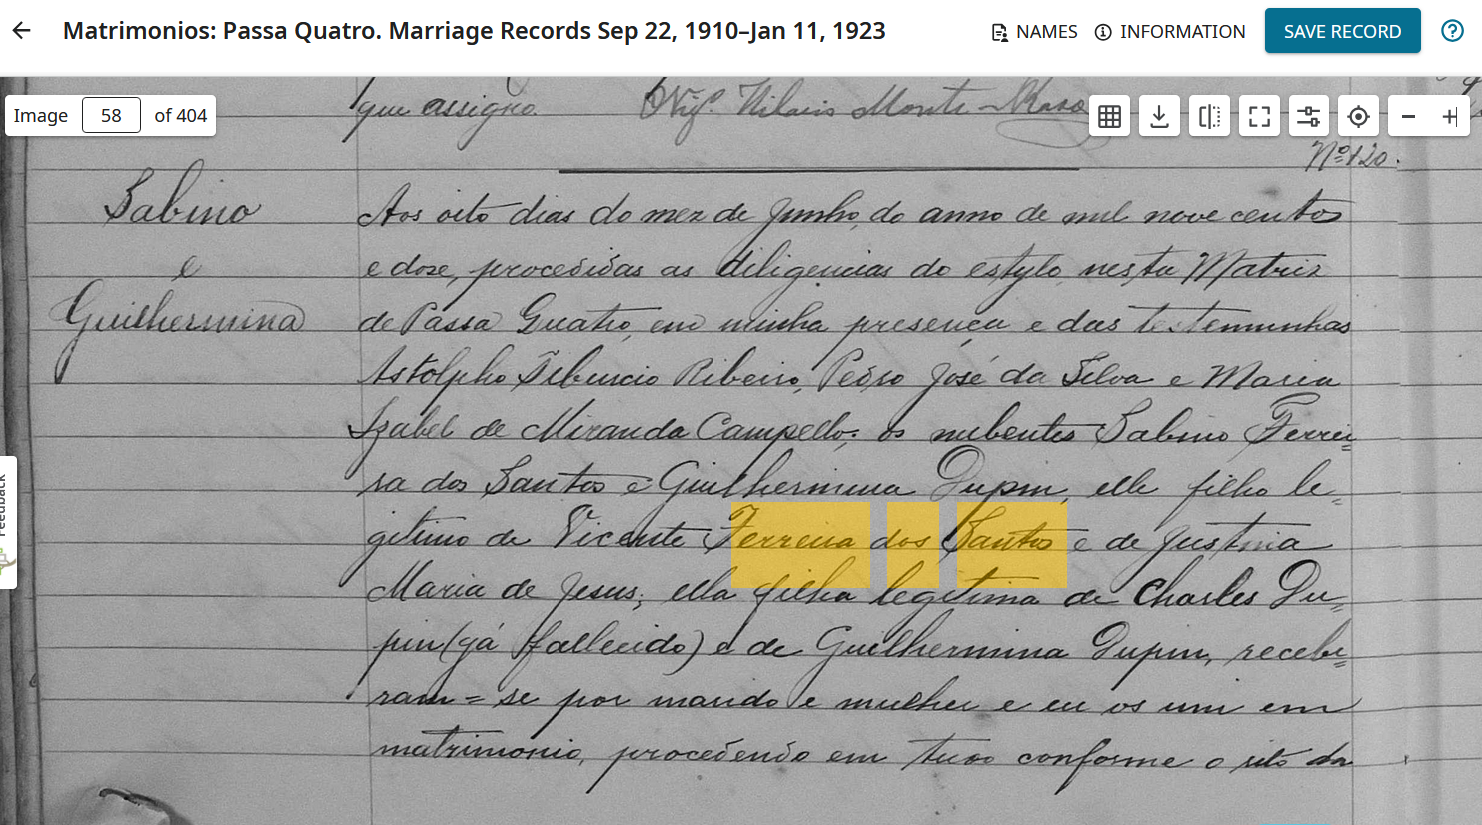 Matrimonios: Passa Quatro. Marriage Records Sep 22, 1910–Jan 11, 1923
NAMES
INFORMATION
SAVE RECORD
Image 58 of 404
que assigno.
Nº 120.
Sabino
e
Guilhermina
Aos oito dias do mez de Junho, do anno de mil nove centos
e doze, procedidas as diligencias do estylo, nesta Matriz
de Passa Quatro, em minha presença e das testemunhas
Astolpho Tiburcio Ribeiro, Pedro José da Silva e Maria
Izabel de Miranda Campello; os nubentes Sabino Ferrei=
ra dos Santos e Guilhermina Dupin, elle filho le=
gitimo de Vicente Ferreira dos Santos e de Justina
Maria de Jesus; ella filha legitima de Charles Du=
pin (já fallecido) e de Guilhermina Dupin, recebe=
ram=se por marido e mulher e eu os uni em
matrimonio, procedendo em tudo conforme o rito da
Feedback